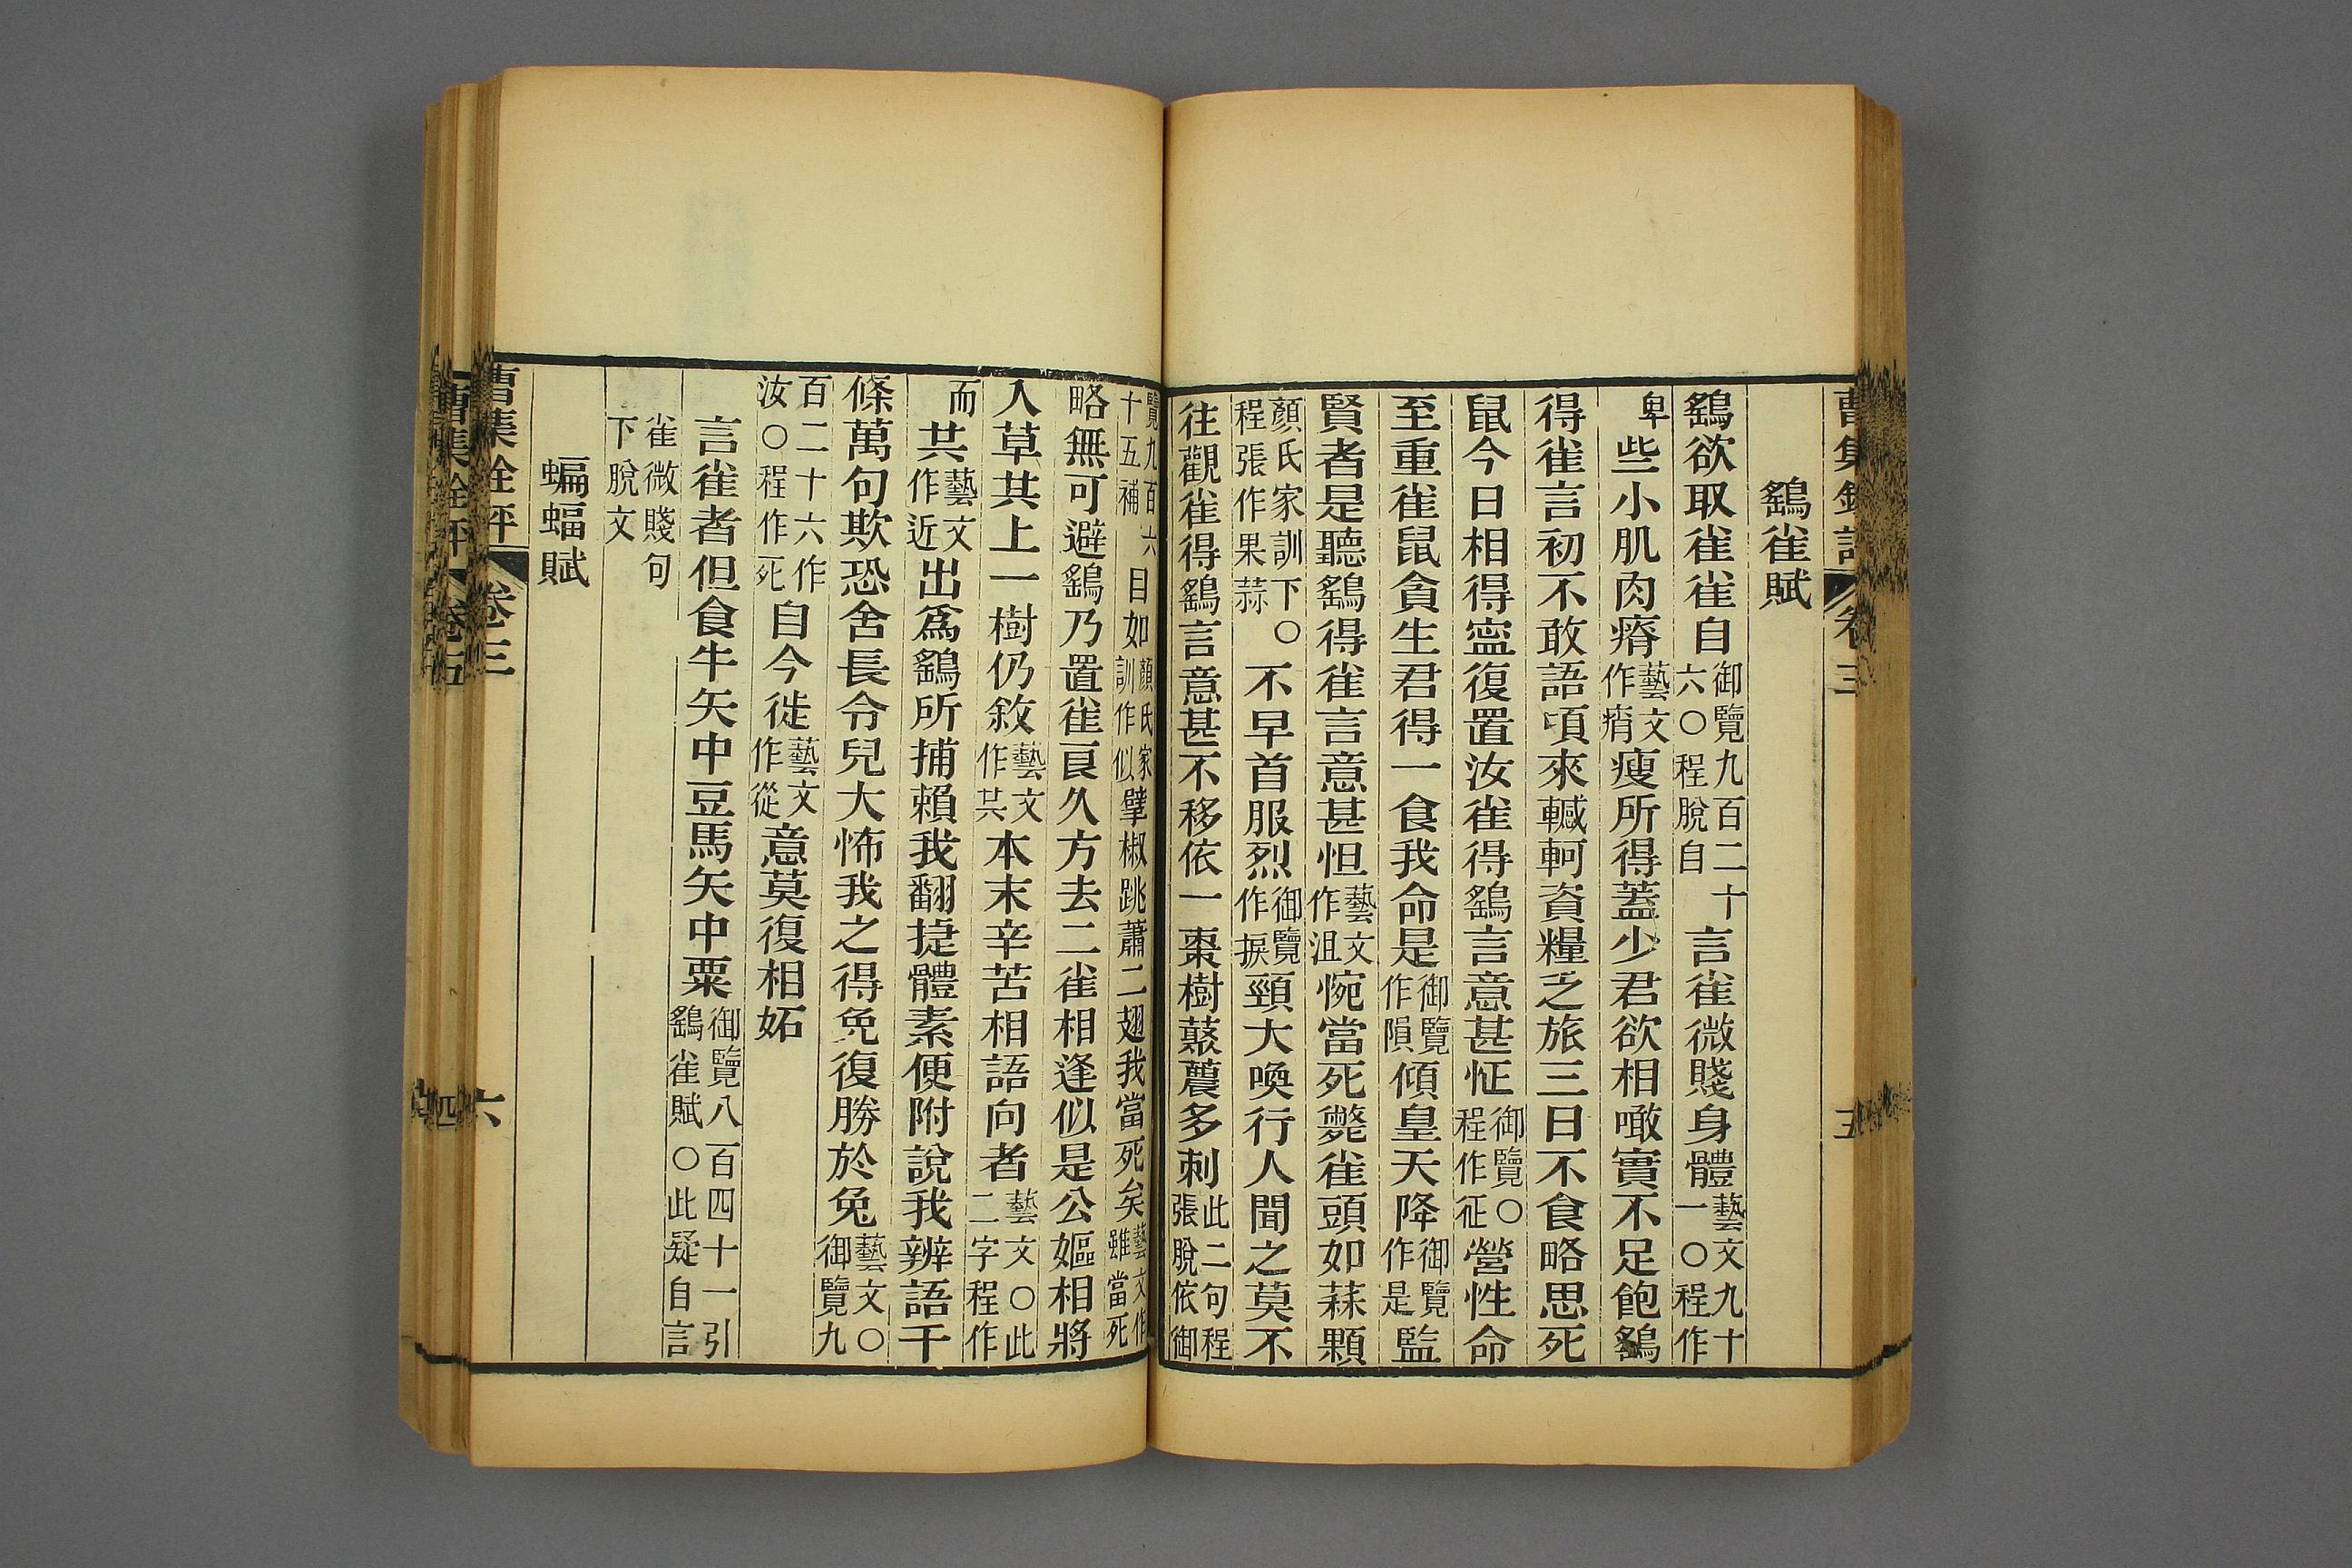 鷂雀賦
鷂欲取雀雀自御覽九百二十六○程脫自言雀微賤身體藝文九十一○程作
卑些小肌肉瘠藝文作瘠瘦所得蓋少君欲相噉實不足飽鷂
得雀言初不敢語頃來轗軻資糧乏旅三日不食略思死
鼠今日相得寍復置汝雀得鷂言意甚怔御覽○程作征營性命
至重雀鼠貪生君得一食我命是御覽作隕傾皇天降御覽作是監
賢者是聽鷂得雀言意甚怛藝文作沮惋當死斃雀頭如蒜顆
顏氏家訓下○程張作果蒜不早首服烈御覽作捩頸大喚行人聞之莫不
往觀雀得鷂言意甚不移依一棗樹藂蕽多刺此二句程張脫依御
覽九百六十五補目如顏氏家訓作似擘椒跳蕭二翅我當死矣藝文作雖當死
略無可避鷂乃置雀良久方去二雀相逢似是公嫗相將
入草共上一樹仍敘藝文作共本末辛苦相語向者藝文○此二字程作
而共藝文作近出爲鷂所捕賴我翻捷體素便附說我辨語千
條萬句欺恐舍長令兒大怖我之得免復勝於兔藝文○御覽九
百二十六作汝○程作死自今徙藝文作從意莫復相妬
言雀者但食牛矢中豆馬矢中粟御覽八百四十一引鷂雀賦○此疑自言
雀微賤句下脫文
蝙蝠賦
卷三
六